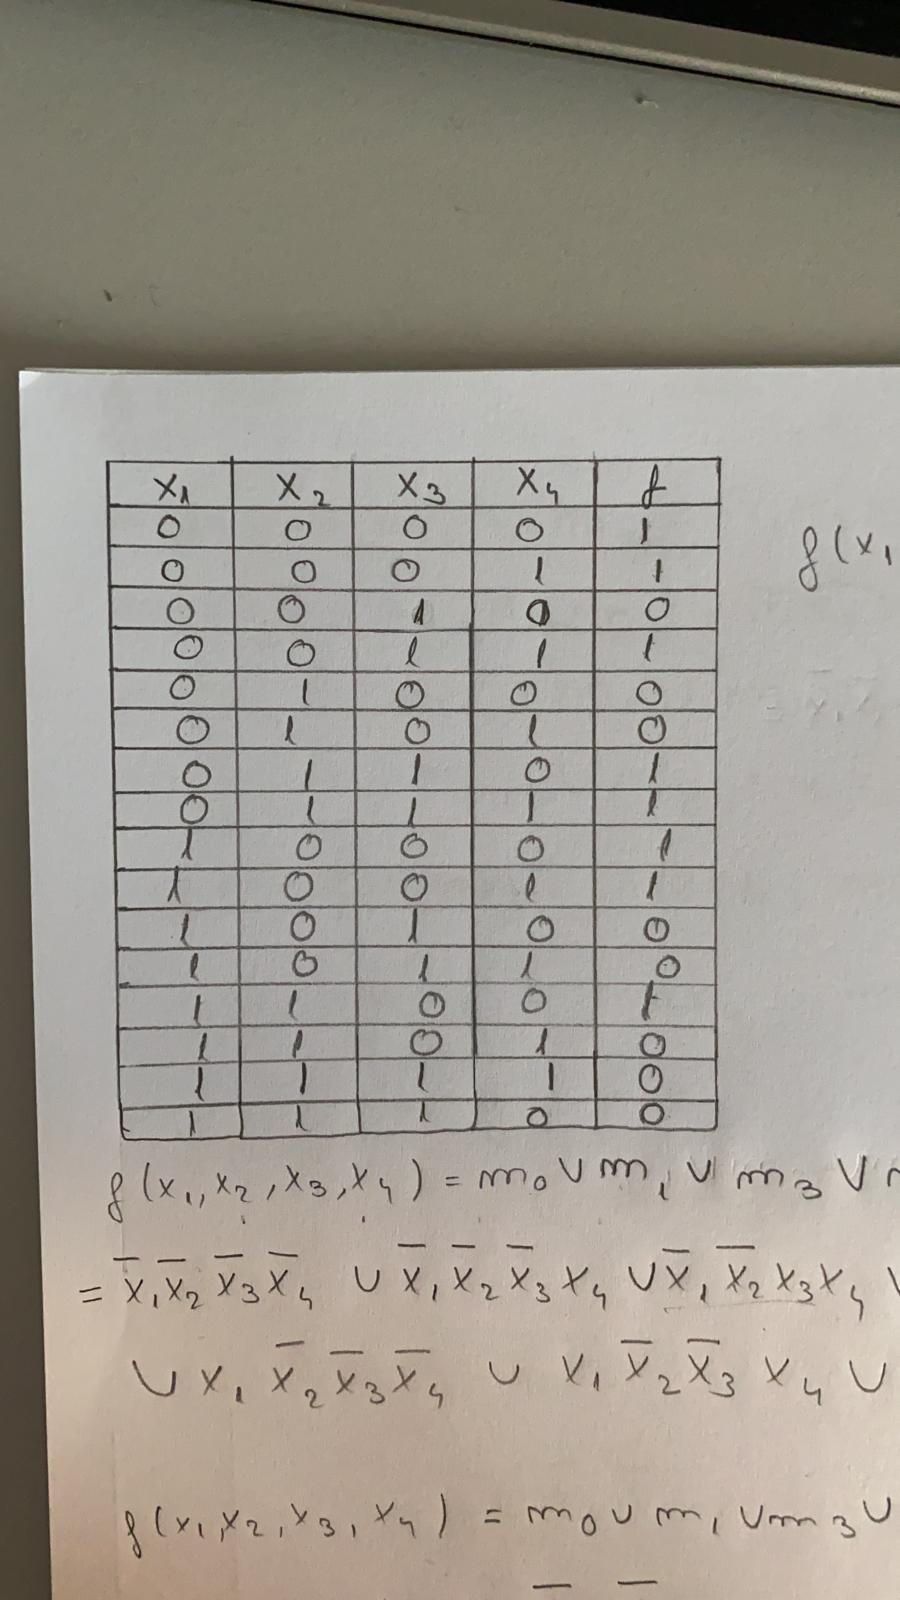 x₁ x₂ x₃ x₄ f
0 0 0 0 1
0 0 0 1 1
0 0 1 0 0
0 0 1 1 1
0 1 0 0 0
0 1 0 1 0
0 1 1 0 1
0 1 1 1 1
1 0 0 0 1
1 0 0 1 1
1 0 1 0 0
1 0 1 1 0
1 1 0 0 1
1 1 0 1 0
1 1 1 1 0
1 1 1 0 0
f(x₁
f(x₁,x₂,x₃,x₄) = m₀ ∨ m₁ ∨ m₃ ∨
= x̄₁x̄₂x̄₃x̄₄ ∨ x̄₁x̄₂x̄₃x₄ ∨ x̄₁x̄₂x₃x₄ ∨
∨ x₁x̄₂x̄₃x̄₄ ∨ x₁x̄₂x̄₃x₄ ∨
f(x₁,x₂,x₃,x₄) = m₀ ∨ m₁ ∨ m₃ ∨